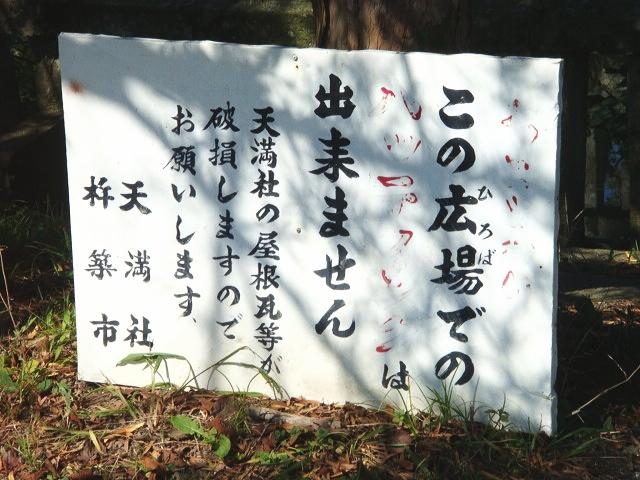 この広場での
ひろば
は
出来ません
天満社の屋根瓦等が
破損しますので
お願いします、
天満社
杵築市